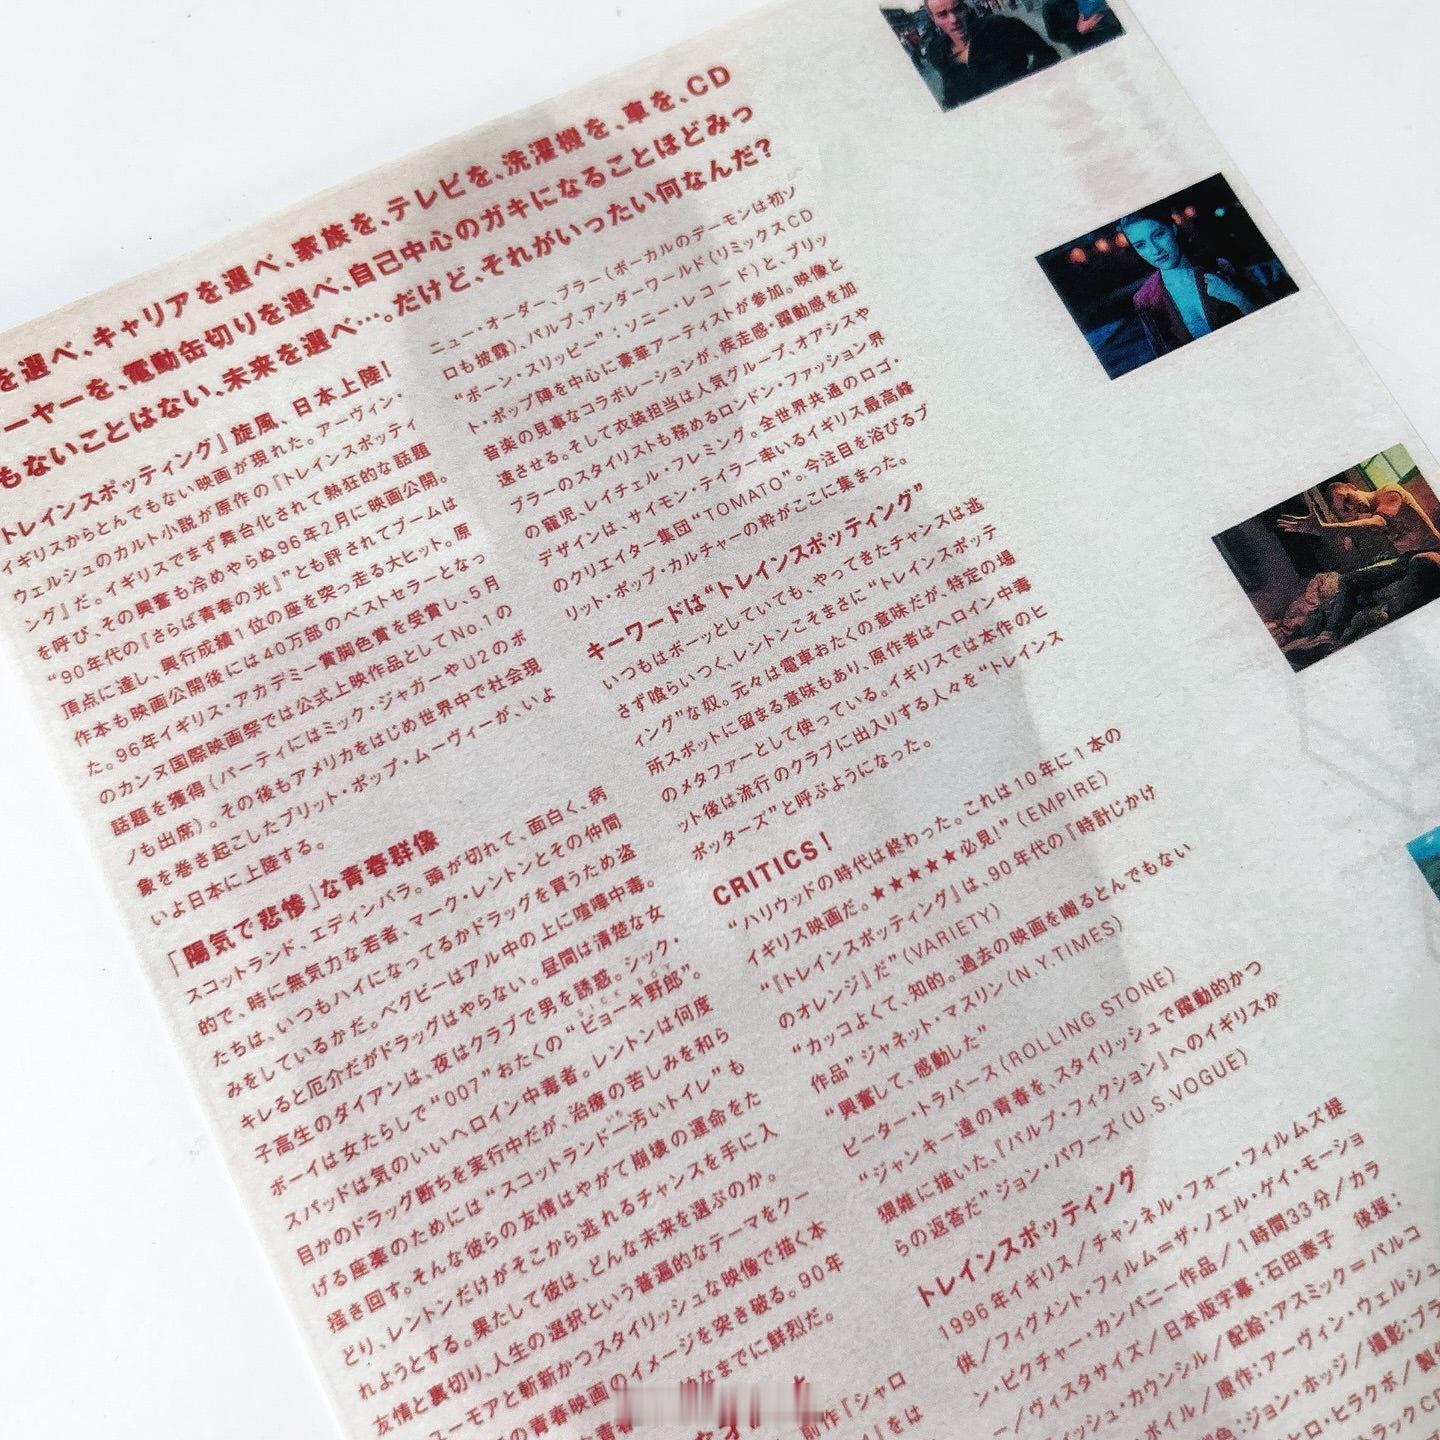 を選べ、キャリアを選べ、家族を、テレビを、洗濯機を、車を、CD
ーヤーを、電動缶切りを選べ、自己中心のガキになることほどみっ
もないことはない、未来を選べ…。だけど、それがいったい何なんだ?
トレインスポッティング』旋風、日本上陸!
イギリスからとんでもない映画が現れた。アーヴィン・
ウェルシュのカルト小説が原作の『トレインスポッティ
ング』だ。イギリスでまず舞台化されて熱狂的な話題
を呼び、その興奮も冷めやらぬ96年2月に映画公開。
“90年代の『さらば青春の光』”とも評されてブームは
頂点に達し、興行成績1位の座を突っ走る大ヒット。原
作本も映画公開後には40万部のベストセラーとなっ
た。96年イギリス・アカデミー賞脚色賞を受賞し、5月
のカンヌ国際映画祭では公式上映作品としてNo.1の
話題を獲得(パーティにはミック・ジャガーやU2のボ
ノも出席)。その後もアメリカをはじめ世界中で社会現
象を巻き起こしたブリット・ポップ・ムーヴィーが、いよ
いよ日本に上陸する。
「陽気で悲惨」な青春群像
スコットランド、エディンバラ。頭が切れて、面白く、病
的で、時に無気力な若者、マーク・レントンとその仲間
たちは、いつもハイになってるかドラッグを買うため盗
みをしているかだ。ベグビーはアル中の上に喧嘩中毒。
キレると厄介だがドラッグはやらない。昼間は清楚な女
子高生のダイアンは、夜はクラブで男を誘惑。シック・
ボーイは女たらしで“007”おたくの“ビョーキ野郎”。
SICK BOY
スパッドは気のいいヘロイン中毒者。レントンは何度
目かのドラッグ断ちを実行中だが、治療の苦しみを和ら
げる座薬のためには“スコットランド一汚いトイレ”も
掻き回す。そんな彼らの友情はやがて崩壊の運命をた
どり、レントンだけがそこから逃れるチャンスを手に入
れようとする。果たして彼は、どんな未来を選ぶのか。
友情と裏切り、人生の選択という普遍的なテーマをクー
ユーモアと斬新かつスタイリッシュな映像で描く本
の青春映画のイメージを突き破る。90年
なまでに鮮烈だ。
前作『シャロ
ニュー・オーダー、ブラー(ボーカルのデーモンは初ソ
ロも披露)、パルプ、アンダーワールド(リミックスCD
“ボーン・スリッピー”:ソニー・レコード)と、ブリッ
ト・ポップ陣を中心に豪華アーティストが参加。映像と
音楽の見事なコラボレーションが、疾走感・躍動感を加
速させる。そして衣装担当は人気グループ、オアシスや
ブラーのスタイリストも務めるロンドン・ファッション界
の寵児、レイチェル・フレミング。全世界共通のロゴ・
デザインは、サイモン・テイラー率いるイギリス最高峰
のクリエイター集団“TOMATO”。今注目を浴びるブ
リット・ポップ・カルチャーの粋がここに集まった。
キーワードは“トレインスポッティング”
いつもはボーッとしていても、やってきたチャンスは逃
さず喰らいつく、レントンこそまさに“トレインスポッテ
ィング”な奴。元々は電車おたくの意味だが、特定の場
所スポットに留まる意味もあり、原作者はヘロイン中毒
のメタファーとして使っている。イギリスでは本作のヒ
ット後は流行のクラブに出入りする人々を“トレインス
ポッターズ”と呼ぶようになった。
CRITICS!
“ハリウッドの時代は終わった。これは10年に1本の
イギリス映画だ。★★★★★必見!”(EMPIRE)
“『トレインスポッティング』は、90年代の『時計じかけ
のオレンジ』だ”(VARIETY)
“カッコよくて、知的。過去の映画を嘲るとんでもない
作品”ジャネット・マスリン(N.Y.TIMES)
“興奮して、感動した”
ピーター・トラバース(ROLLING STONE)
“ジャンキー達の青春を、スタイリッシュで躍動的かつ
猥雑に描いた、『パルプ・フィクション』へのイギリスか
らの返答だ”ジョン・パワーズ(U.S.VOGUE)
トレインスポッティング
1996年イギリス/チャンネル・フォー・フィルムズ提
供/フィグメント・フィルム=ザ・ノエル・ゲイ・モーショ
ン・ピクチャー・カンパニー作品/1時間33分/カラ
ー/ヴィスタサイズ/日本版字幕:石田泰子 後援:
ィッシュ・カウンシル/配給:アスミック=パルコ
ボイル/原作:アーヴィン・ウェルシュ
色:ジョン・ホッジ/撮影:ブラ
ヒロ・ヒラクボ/製作
トラックCD